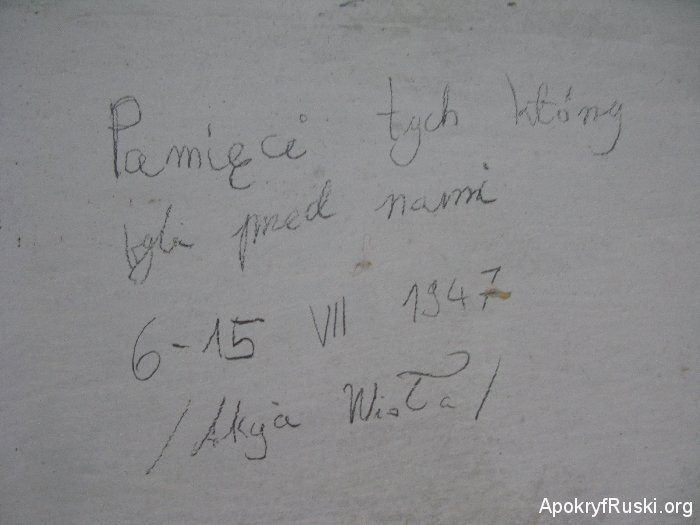 Pamięci tych którzy
byli przed nami
6-15 VII 1947
/Akcja Wisła/
ApokryfRuski.org